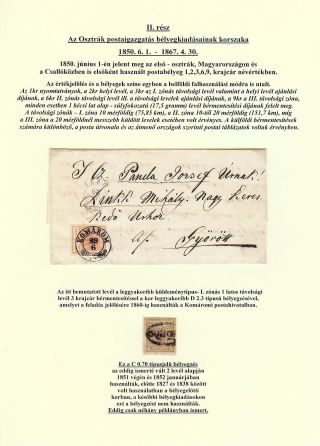 II. rész
Az Osztrák postaigazgatás bélyegkiadásainak korszaka
1850. 6. 1. - 1867. 4. 30.
1850. június 1-én jelent meg az első - osztrák, Magyarországon és
a Csallóközben is elsőként használt postabélyeg 1,2,3,6,9, krajcár névértékben.
Az értékjelölés és a bélyegek színe egyben a belföldi felhasználási módra is utalt.
Az 1kr nyomtatványok, a 2kr helyi levél, a 3kr az I. zónás távolsági levél valamint a helyi levél ajánlási
díjának, a 6kr II. zónás távolsági levél ill. a távolsági levelek ajánlási díjának, a 9kr a III. távolsági zóna,
minden esetben 1 bécsi lat alap - súlyfokozatú (17,5 gramm) levél bérmentesítési díjának felelt meg.
A távolsági zónák - I. zóna 10 mérföldig (75,85 km), a II. zóna 10-től 20 mérföldig (151,7 km), míg
a III. zóna a 20 mérföldnél messzebb küldött levelek esetében volt érvényes. A külföldi bérmentesítések
számára különböző, a posta útvonala és az átmenő országok szerinti postai táblázatok voltak érvényben.
Panda József Úrnak!
Zinkl Mihály Nagy keres
kedő Úrhoz
Györött
KOMÁROM
29
6
Az itt bemutatott levél a leggyakoribb küldeménytípus- I. zónás 1 latos távolsági
levél 3 krajcár bérmentesítéssel a kor leggyakoribb D 2.3 típusú bélyegzésével,
amelyet a feladás jelölésére 1860-ig használtak a Komáromi postahivatalban.
Ez a C 0.70 típusjelű bélyegzés
az eddig ismerté vált 2 levél alapján
1851 végén és 1852 januárjában
használták, előtte 1827 és 1838 között
volt használatban a bélyegelőtti
korban, a későbbi bélyegkiadásokon
ezt a bélyegzést nem használták.
Eddig csak néhány példányban ismert.